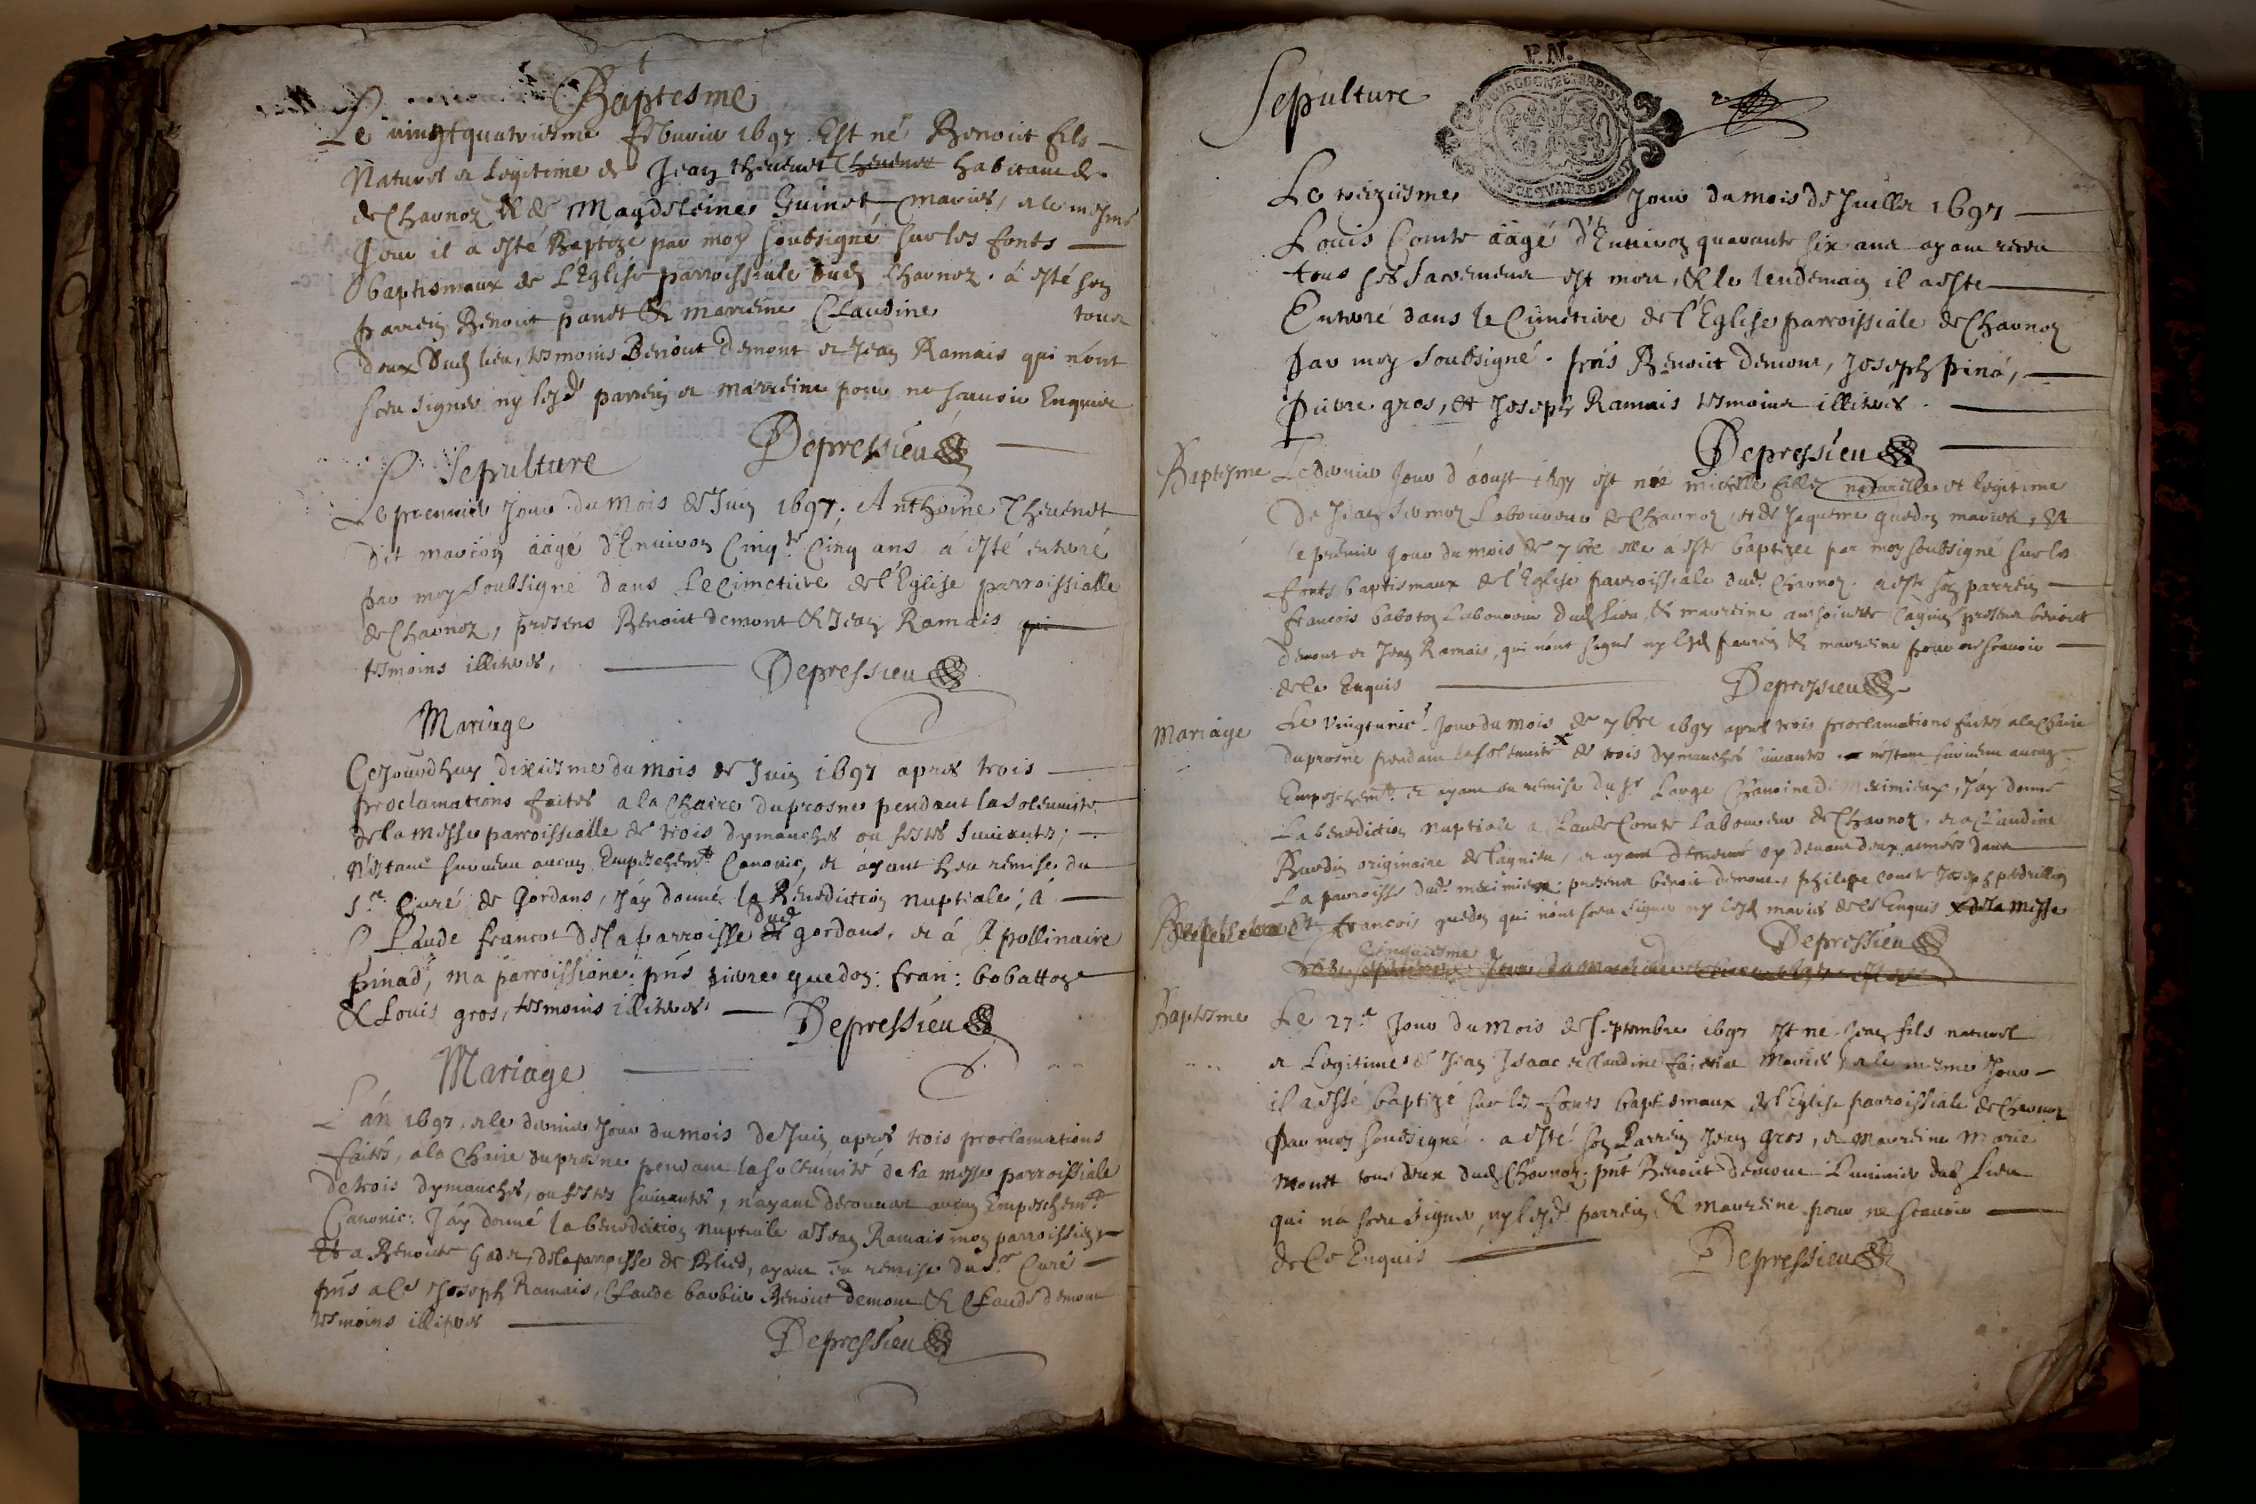 Baptesme
Le vingtquatriesme febvrier 1697 Est né Benoit fils
Naturel et Legitime de Jean thevenet habitant de
de Charnoz & de Magdeleine Guinet mariés, et le mesme
Jour il a esté Baptizé par moy soubsigné sur les fonts
baptismaux de L'Eglise parroissiale dud Charnoz. a esté son
parrein Benoit panet & marreine Claudine tous
deux dud lieu, tesmoins Benoit Demont et Jean Ramais qui n'ont
sceu signer ny lesd parrein et marreine pour ne scavoir Enquis
Depressieu
Sepulture
Le premier Jour du mois de Juin 1697, Anthoine Thevenet
dit marion aagé d'Environ Cinq.te Cinq ans a esté enterré
par moy soubsigné dans Le cimetiere de l'Eglise parroissialle
de Charnoz, presens Benoit demont & Jean Ramais qui
tesmoins illiteres,
Depressieu
Mariage
Cejourdhuy dixiesme du mois de Juin 1697 apres trois
proclamations faites a la Chaire du prosne pendant la solennité
de la messe parroissialle de trois dymanches ou festes suivantes;
N'estant survenu aucun Empeschem.t Canonic, et ayant heu remise du
s.r Curé de Gordans, J'ay donné la Benediction nuptiale, a
Claude francot de la parroisse dud gordans, et a Apollinaire
pinad, ma parroissiene. pns pierre guedon: fran: bobatton
& Louis gros, tesmoins illiteres.
Depressieu
Mariage
L'an 1697, et le dernier Jour du mois de Juin apres trois proclamations
faites, a la Chaire du prosne pendant la solennité de la messe parroissiale
de trois dymanches, ou festes suivantes, n'ayant decouvert aucun Empeschem.t
Canonic: J'ay donné la benediction nuptiale a Jean Ramais mon parroissien
Et a Benoite de la parroisse de Blies, ayant eu remise du S.r Curé
pns a ce Joseph Ramais, Claude barbier Benoit demont & Claude demont
tesmoins illiteres
Depressieu
Sepulture
P.N.
Le treziesme Jour du mois de Juillet 1697
Louis Comte aagé d'Environ quarante six ans ayant receu
tous ses sacremens est mort, & le lendemain il a este
Enterré dans le Cimetiere de l'Eglise parroissiale de Charnoz
par moy soubsigné. pns Benoit demont, Joseph pina,
pierre gros, et Joseph Ramais tesmoins illiteres.
Depressieu
Baptesme
Le dernier Jour d'aoust 1697 est née fille naturelle et legitime
de Jean Laboureur de Charnoz, et de Jaqueme guedon mariés, et
le premier Jour du mois de 7bre elle a este baptizee par moy soubsigné sur les
fonts baptismaux de l'Eglise parroissiale dud Charnoz. a este son parrein
francois baboton Laboureur dud Lieu, & marreine presens benoit
demont et Jean Ramais, qui n'ont signé ny lesd parrein & marreine pour ne scavoir
de ce Enquis
Depressieu
Mariage
Le vingtunie. Jour du mois de 7bre 1697 apres trois proclamations faites a la Chaire
du prosne pendant la solennité x de trois dymanches suivantes n'estant survenu aucun
Empeschem.t et ayant eu remise du Sr Large Chanoine de meximieux, J'ay donné
La benediction nuptiale a Claude Comte Laboureur de Charnoz, et a Claudine
originaire de lagnieu, et ayant demeuré cy devant deux années dans
La parroisse dud meximieux: presens benoit demont, philippe comte Joseph
Et francois guedon qui n'ont sceu signer ny lesd mariés de ce Enquis x de la Messe
Depressieu
Baptesme
Le 27.e Jour du mois de Septembre 1697 est né Jean fils naturel
et Legitime de Jean Isaac et Claudine Mariés, et le mesme Jour
il a esté baptizé sur les fonts baptismaux de l'Eglise parroissiale de Charnoz
par moy soubsigné. a esté son Parrein Jean gros, et Marreine Marie
Monet tous deux dud Charnoz, pnt Benoit demont dud Lieu
qui na sceu signer, ny lesd parrein & Marreine pour ne scavoir
de ce Enquis
Depressieu